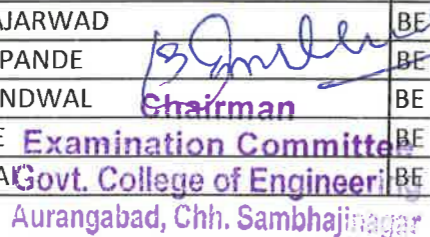 AJARWAD BE
PANDE BE
NDWAL Chairman BE
E Examination Committee BE
A Govt. College of Engineeri BE
Aurangabad, Chh. Sambhajinagar